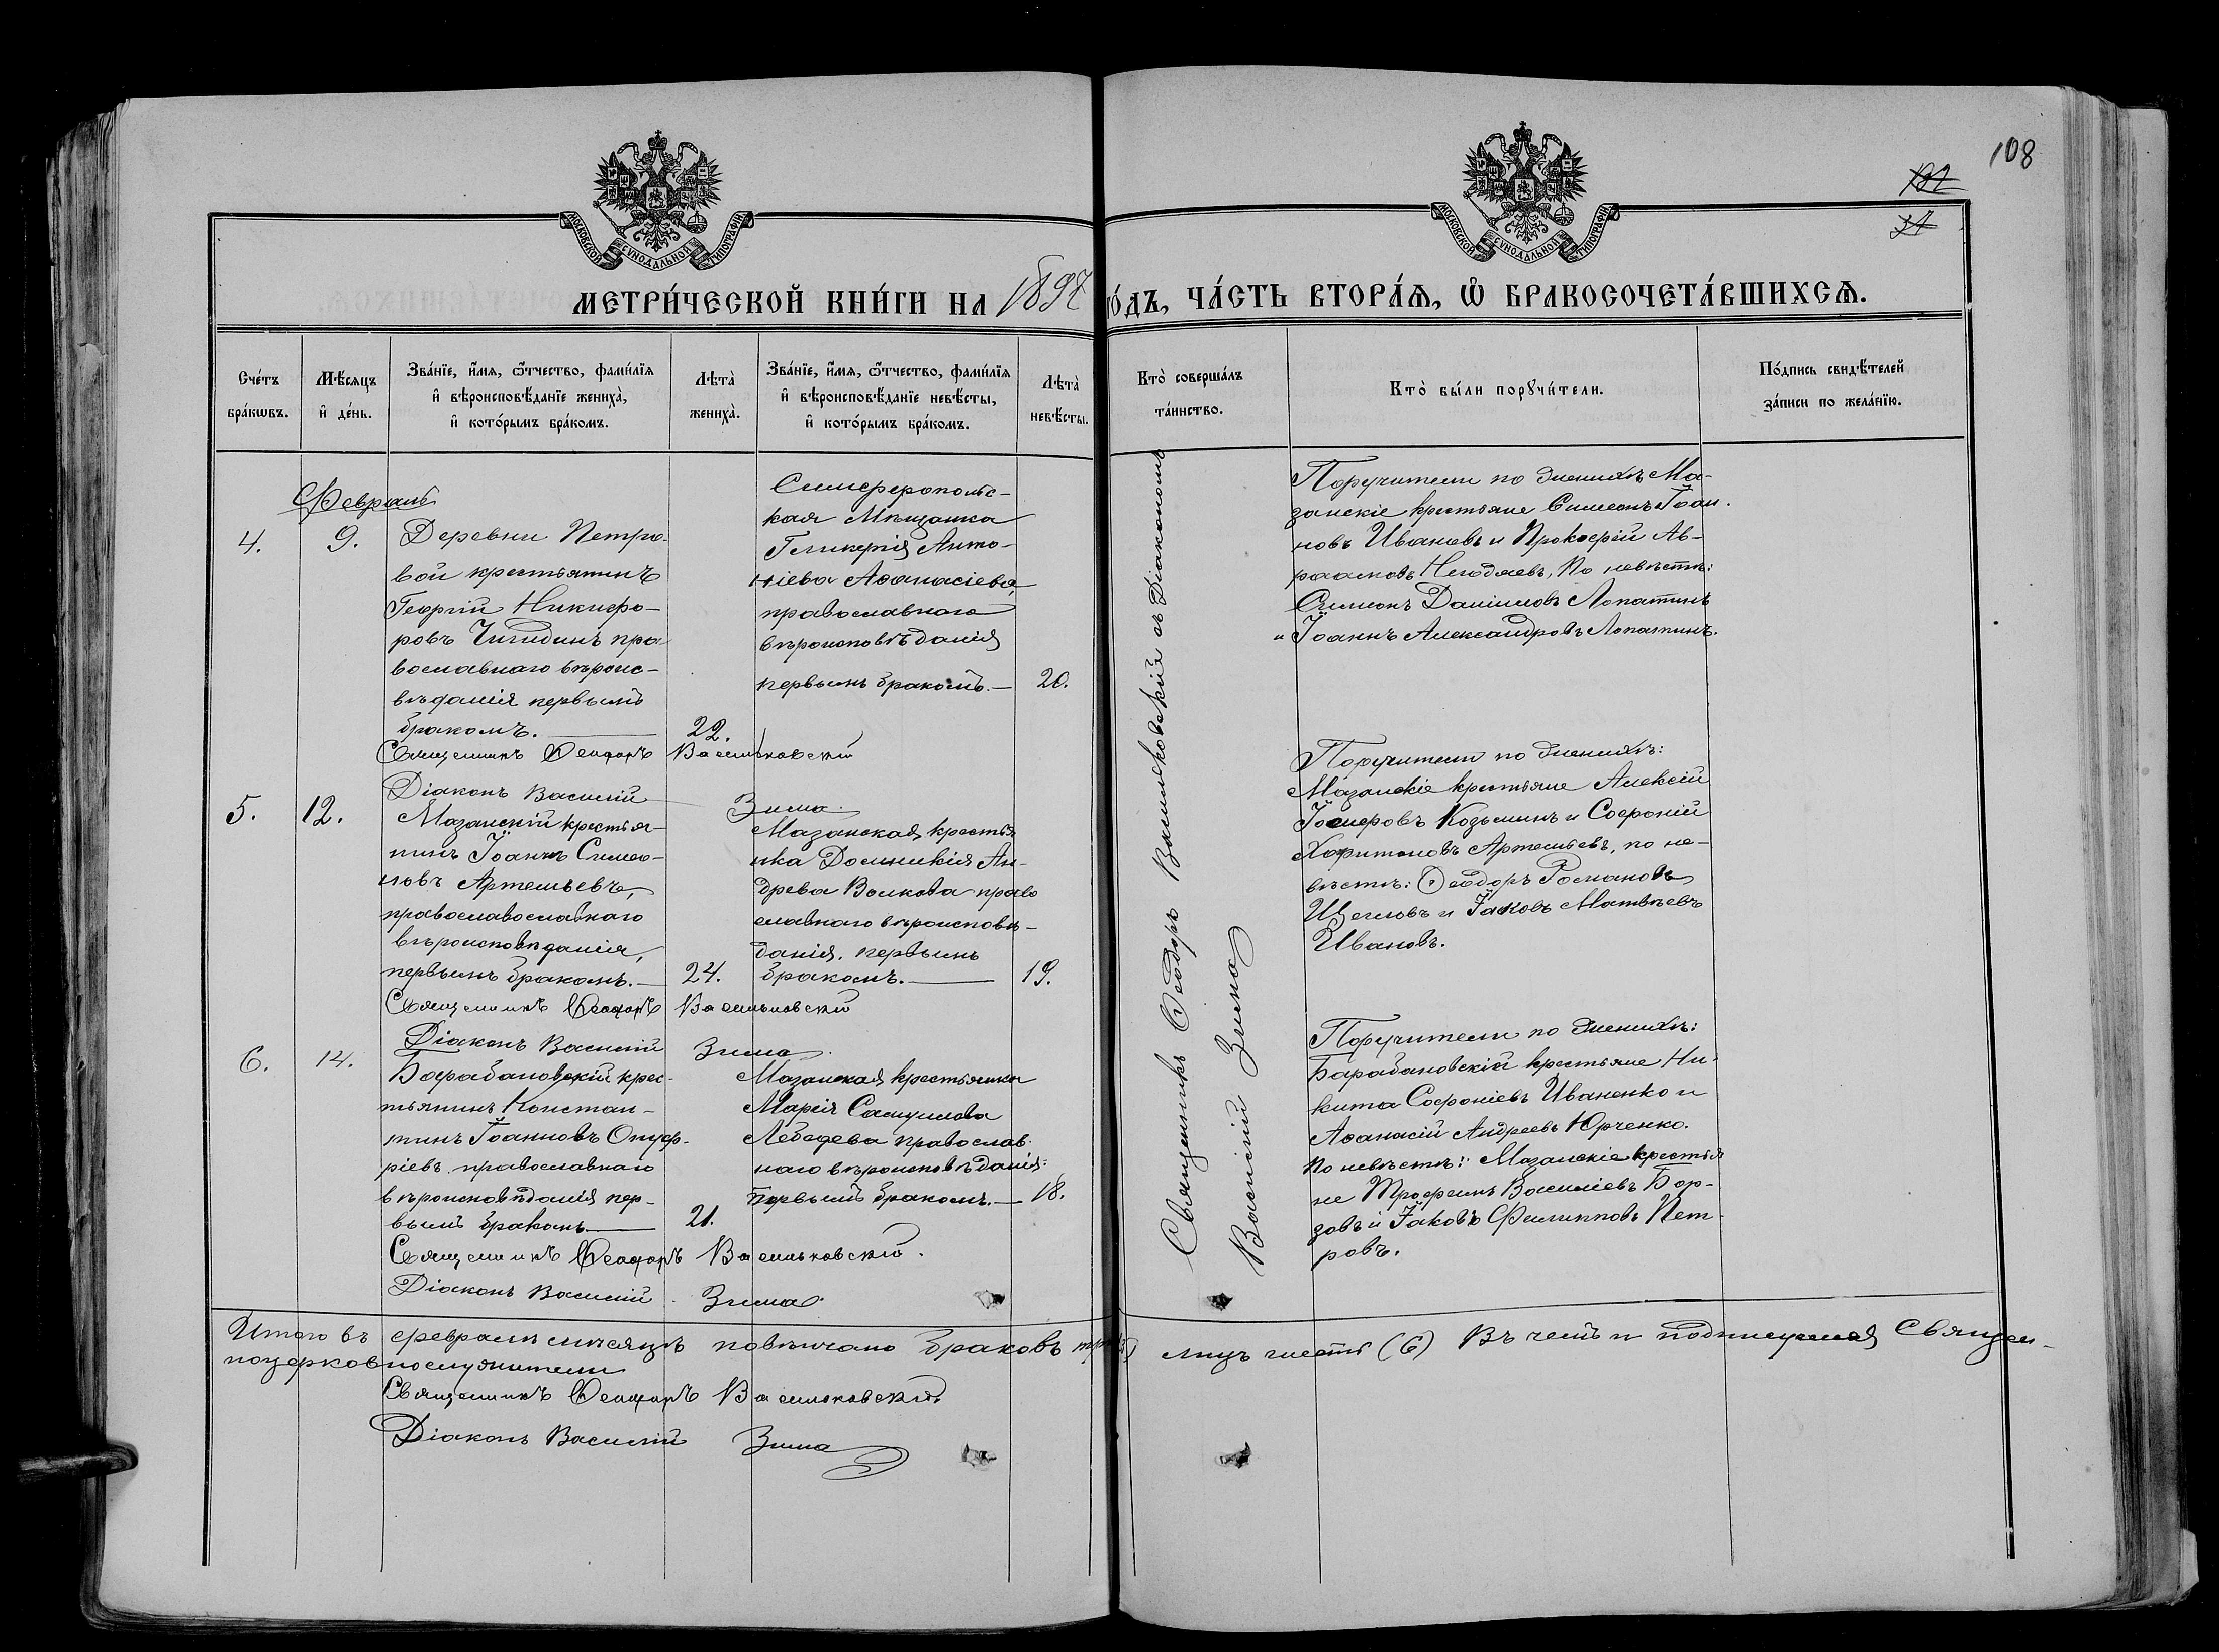 108
МОСКОВСКОЙ СУНОДАЛЬНОЙ ТИПОГРАФІИ
МОСКОВСКОЙ СУНОДАЛЬНОЙ ТИПОГРАФІИ
МЕТРИ́ЧЕСКОЙ КНИ́ГИ НА 1897 ГО́ДЪ, ЧА́СТЬ ВТОРА́Ѧ, Ѽ БРАКОСОЧЕТА́ВШИХСѦ.
Сче́тъ бра́кѡвъ.
Мѣ́сяцъ и҆ де́нь.
Зва́нїе, и҆́мѧ, ѻ҆́тчество, фами́лїѧ и҆ вѣроисповѣ́данїе жениха̀, и҆ кото́рымъ бра́комъ.
Лѣта̀ жениха̀.
Зва́нїе, и҆́мѧ, ѻ҆́тчество, фами́лїѧ и҆ вѣроисповѣ́данїе невѣ́сты, и҆ кото́рымъ бра́комъ.
Лѣта̀ невѣ́сты.
Кто̀ соверша́лъ та́инство.
Кто̀ бы́ли порꙋчи́тели.
По́дпись свидѣ́телей за́писи по жела́нїю.
Февраль
4.
9.
Деревни Петро-
вой крестьянинъ
Георгій Никифо-
ровъ Чигидинъ пра-
вославнаго вѣроис-
вѣданія первымъ
бракомъ.
22.
Симферопольс-
кая Мѣщанка
Гликерія Анто-
ніева Аѳанасіева,
православнаго
вѣроисповѣданія
первымъ бракомъ.
20.
Священникъ Ѳеодоръ Васильковскій
Діаконъ Василій Зима
Поручители по женихѣ Ма-
занскіе крестьяне Симеонъ Іоан-
новъ Ивановъ и Прокофій Ав-
раамовъ Негодяевъ, По невѣстѣ:
Симеонъ Даніиловъ Лопатинъ
и Іоаннъ Александровъ Лопатинъ.
5.
12.
Мазанскій крестья-
нинъ Іоаннъ Симео-
новъ Артемьевъ,
православославнаго
вѣроисповѣданія,
первымъ бракомъ.
24.
Мазанская крестья
нка Домникія Ан-
древа Волкова право
славнаго вѣроисповѣ-
данія, первымъ
бракомъ.
19.
Священникъ Ѳеодоръ Васильковскій
Діаконъ Василій Зима
Поручители по женихѣ:
Мазанскіе крестьяне Алексій
Іосифовъ Козьминъ и Софроній
Харитоновъ Артемьевъ, по не-
вѣстѣ: Ѳеодоръ Романовъ
Щегловъ и Іаковъ Матвѣевъ
Ивановъ.
6.
14.
Барабановскій крес-
тьянинъ Констан-
тинъ Іоанновъ Онуф-
ріевъ православнаго
вѣроисповѣданія пер-
вымъ бракомъ
21.
Мазанская крестьянка
Марія Самуилова
Лебедева православ-
наго вѣроисповѣданія:
первымъ бракомъ.
18.
Священникъ Ѳеодоръ Васильковскій.
Діаконъ Василій Зима
Поручители по женихѣ:
Барабановскій крестьяне Ни-
кита Софроніевъ Иваненко и
Аѳанасій Андреевъ Юрченко.
По невѣстѣ: Мазанскіе крестья
не Трофимъ Василіевъ Бор-
зовъ и Іаковъ Филипповъ Пет-
ровъ.
Священникъ Ѳеодоръ Васильковскій съ Діакономъ
Василій Зима
Итого въ февралѣ мѣсяцѣ повѣнчано браковъ лицъ шесть (6) Въ чемъ и подписуемся Священ-
ноцерковнослужители
Священникъ Ѳеодоръ Васильковскій
Діаконъ Василій Зима